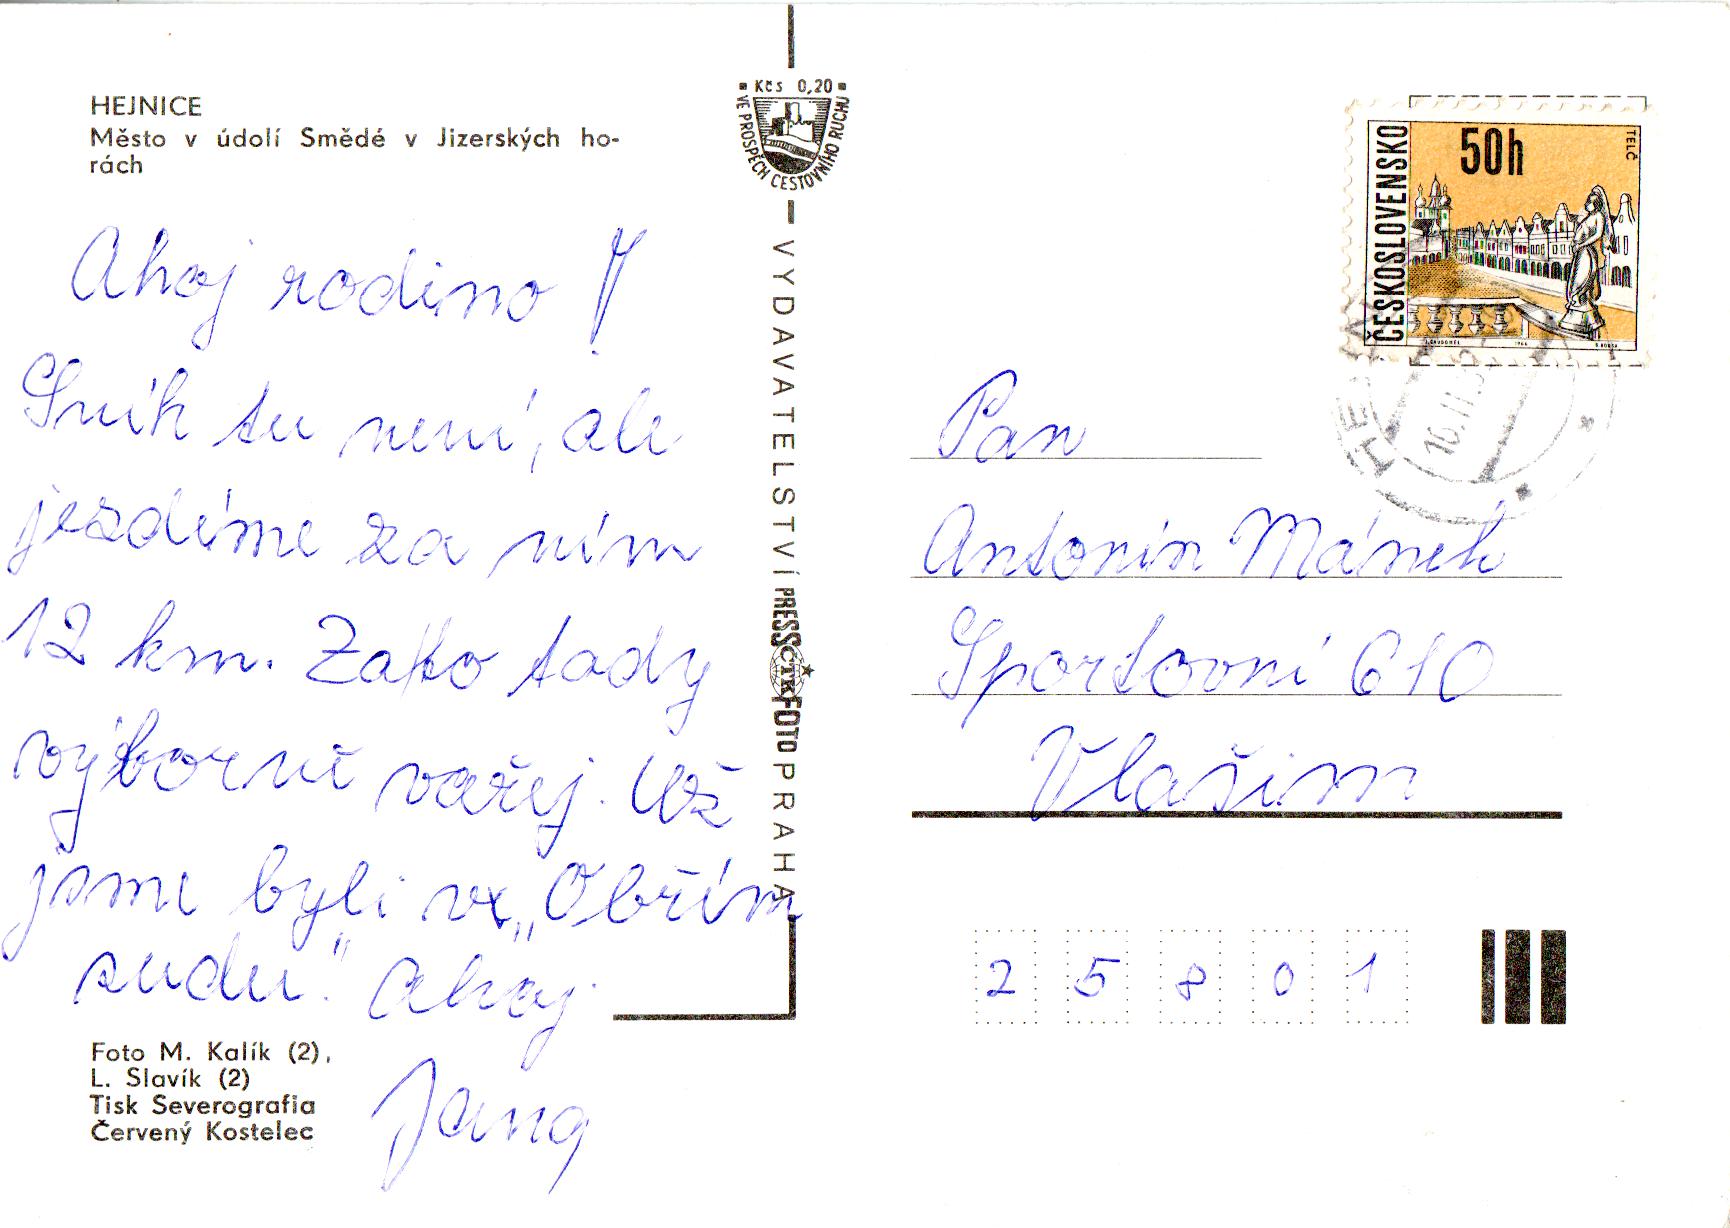 HEJNICE
Město v údolí Smědé v Jizerských ho-
rách
Ahoj rodino!
Sníh tu není, ale
jezdíme za ním
12 km. Zato tady
výborně vařej. Už
jsme byli v „Obřím
sudu". Ahoj.
Jana
Foto M. Kalík (2),
L. Slavík (2)
Tisk Severografia
Červený Kostelec
Kčs 0,20
VE PROSPĚCH CESTOVNÍHO RUCHU
VYDAVATELSTVÍ PRESSFOTO PRAHA
ČTK
ČESKOSLOVENSKO
50h
TELČ
1966
Pan
Antonín Mánek
Sportovní 610
Vlašim
25801